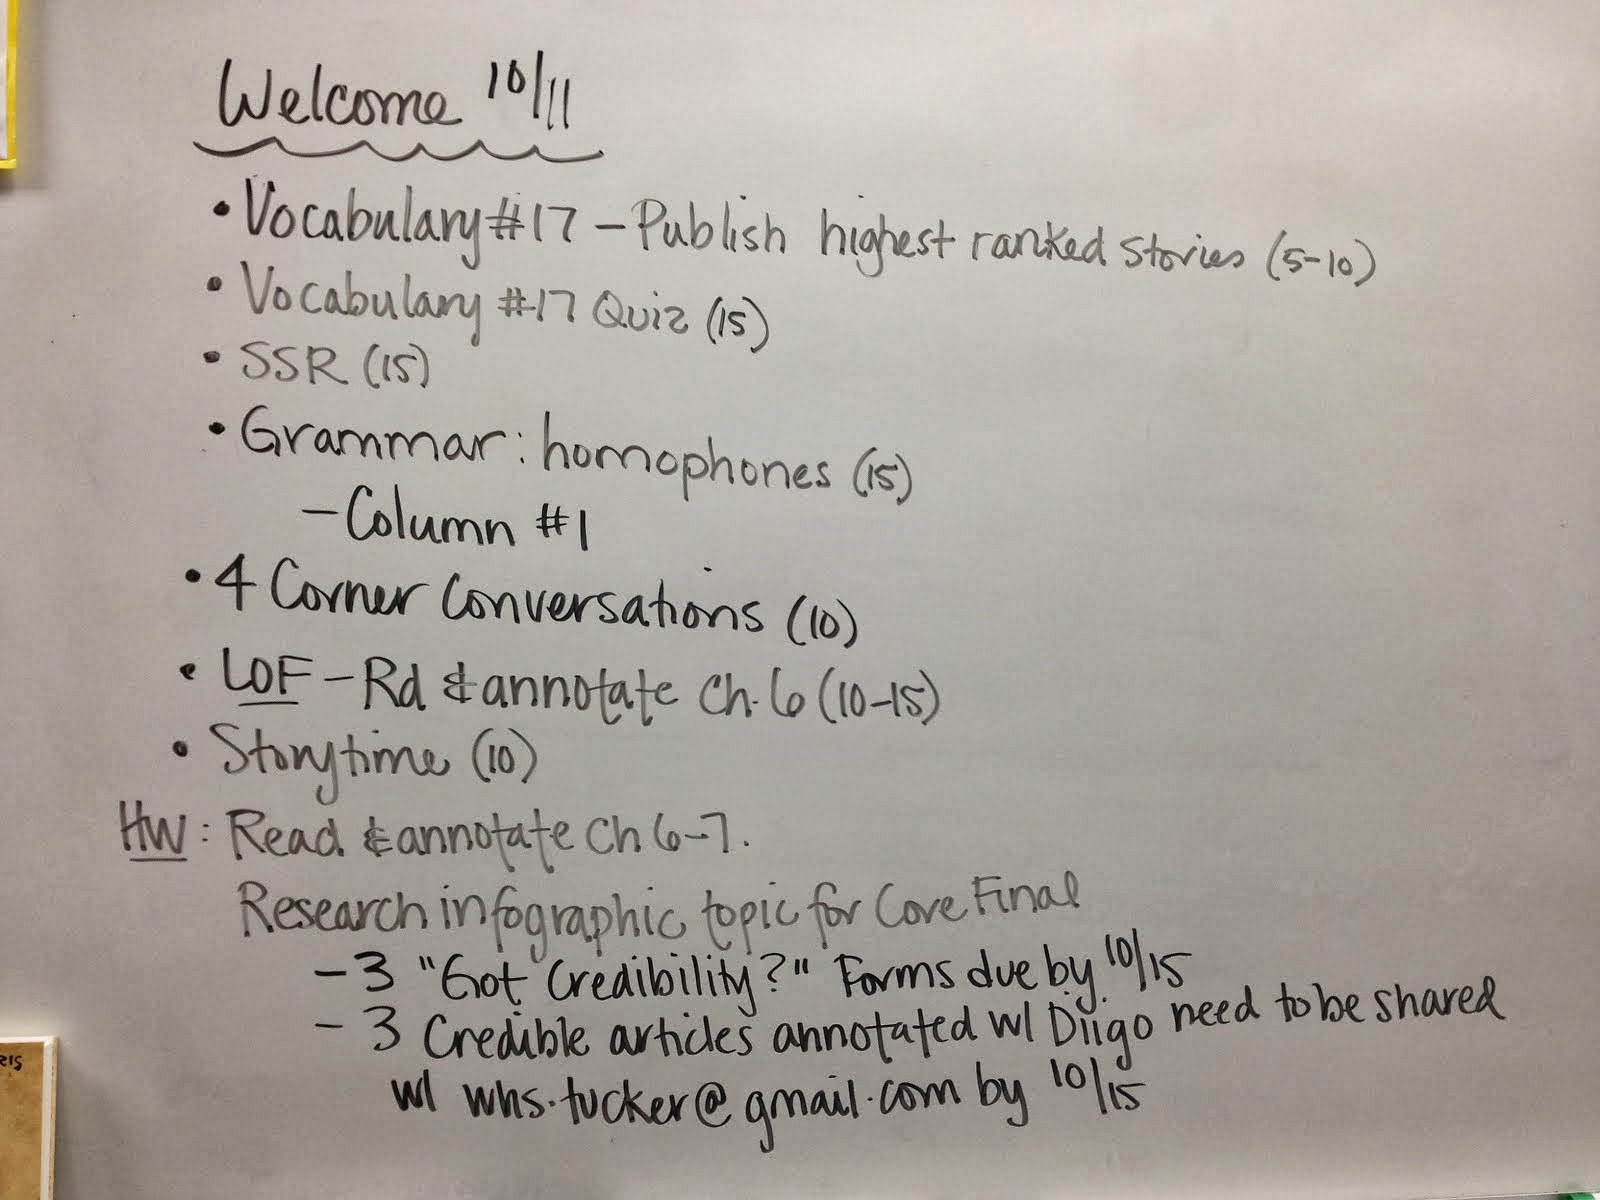 Welcome 10/11
• Vocabulary #17 - Publish highest ranked stories (5-10)
• Vocabulary #17 Quiz (15)
• SSR (15)
• Grammar: homophones (15)
- Column #1
• 4 Corner Conversations (10)
• LOF - Rd & annotate Ch. 6 (10-15)
• Storytime (10)
HW: Read & annotate Ch 6-7.
Research infographic topic for Core Final
- 3 "Got Credibility?" Forms due by 10/15
- 3 Credible articles annotated w/ Diigo need to be shared
w/ whs.tucker@gmail.com by 10/15